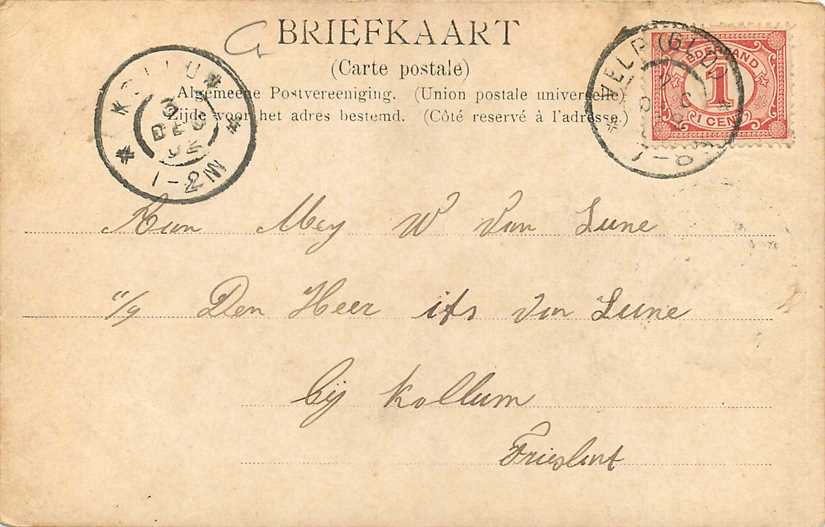 BRIEFKAART
(Carte postale)
Algemeene Postvereeniging. (Union postale universelle)
Zijde voor het adres bestemd. (Côté reservé à l'adresse.)
KOLLUM
DEC
1-2M
VELP (GLD)
NEDERLAND
1
1 CENT
Mej W van Lune
Den Heer van Lune
bij Kollum
Frieslant